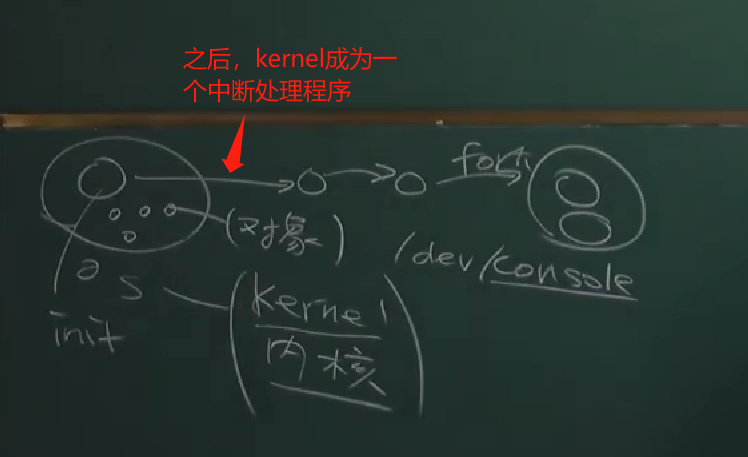 之后，kernel成为一
个中断处理程序
fork
(对象)
/dev/console
os
init
(kernel
内核)